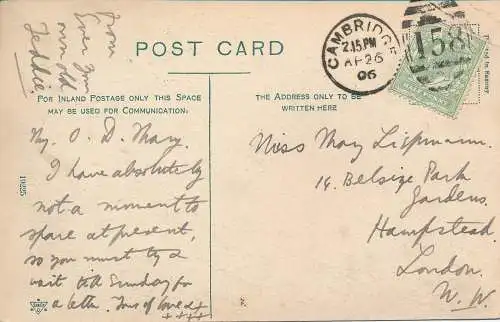 From
Ever Your
own old
Teddie
POST CARD
CAMBRIDGE
2.15 PM
AP 26
06
158
Printed in Saxony
FOR INLAND POSTAGE ONLY THIS SPACE
MAY BE USED FOR COMMUNICATION.
THE ADDRESS ONLY TO BE
WRITTEN HERE
My O. D. Mary.
I have absolutely
not a moment to
spare at present,
so you must try &
wait till Sunday for
a letter. Tons of love &
++++
Miss May Lippmann.
14. Belsize Park
Gardens.
Hampstead
London.
N. W.